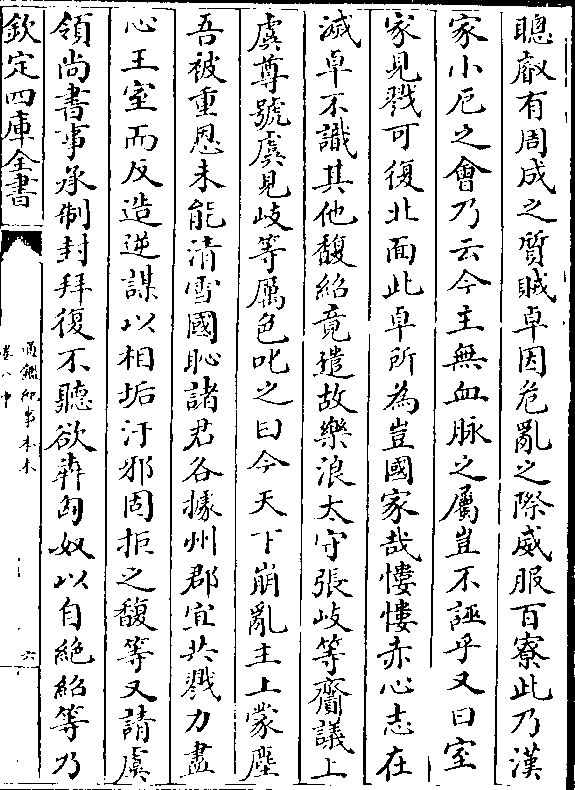 聰叡有周成之質賊卓因危亂之際威服百寮此乃漢
家小厄之會乃云今主無血脉之屬豈不誣乎又曰室
家見戮可復北面此卓所為豈國家哉慺慺赤心志在
滅卓不識其他馥紹竟遣故樂浪太守張岐等齎議上
虞尊號虞見岐等厲色叱之曰今天下崩亂主上蒙塵
吾被重恩未能清雪國恥諸君各據州郡宜共戮力盡
心王室而反造逆謀以相垢汙邪固拒之馥等又請虞
領尚書事承制封拜復不聽欲犇匈奴以自絶紹等乃
欽定四庫全書
通鑑紀事本末
卷八中
六